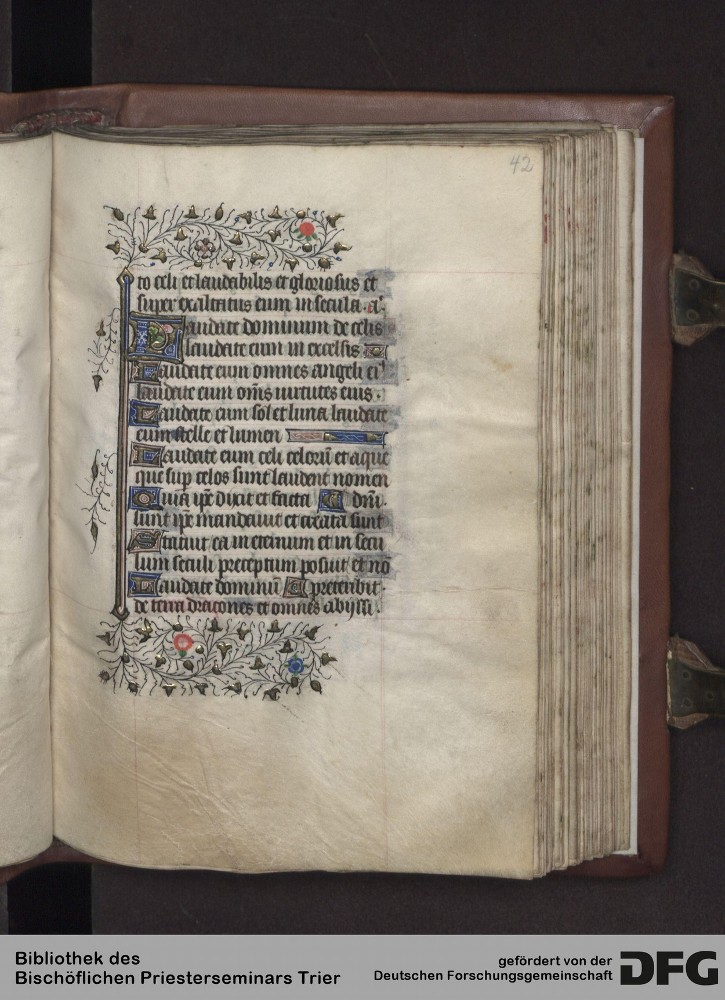 42
to celi et laudabilis et gloriosus et
super exaltatus eum in secula. a'.
Laudate dominum de celis
laudate eum in excelsis
Laudate eum omnes angeli ei'
laudate eum om̄s uirtutes eius.
Laudate eum sol et luna laudate
eum stelle et lumen
Laudate eum celi celorū et aque
que sup celos sunt laudent nomen
Quia ip̄e dixit et facta dn̄i.
sunt ip̄e mandauit et creata sunt
Statuit ea in eternum et in secu
lum seculi preceptum posuit et nō
Laudate dominū preteribit.
de terra dracones et omnes abyssi.
Bibliothek des
Bischöflichen Priesterseminars Trier
gefördert von der
Deutschen Forschungsgemeinschaft
DFG